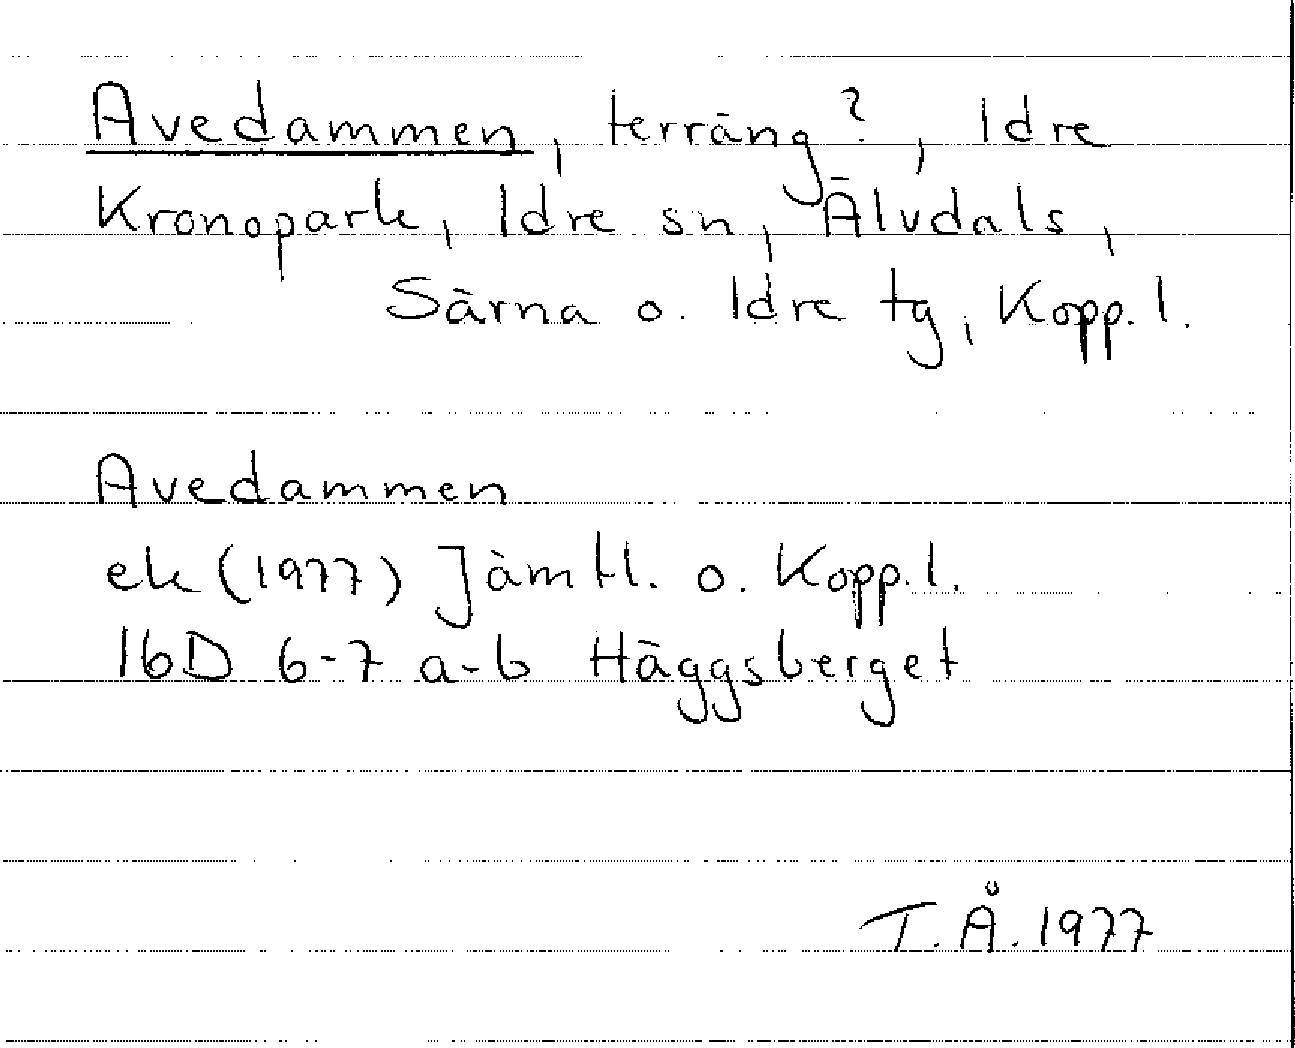 Avedammen, terräng?, Idre
Kronopark, Idre sn, Älvdals,
Särna o. Idre tg, Kopp. l.
Avedammen
ek (1977) Jämtl. o. Kopp. l.
16D 6-7 a-b Häggsberget
T. Å. 1977